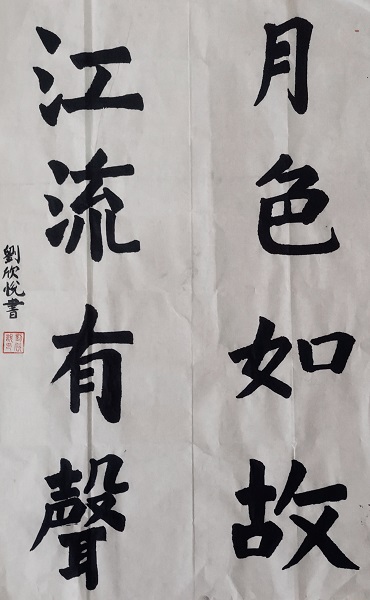 月色如故
江流有聲
劉欣悅書